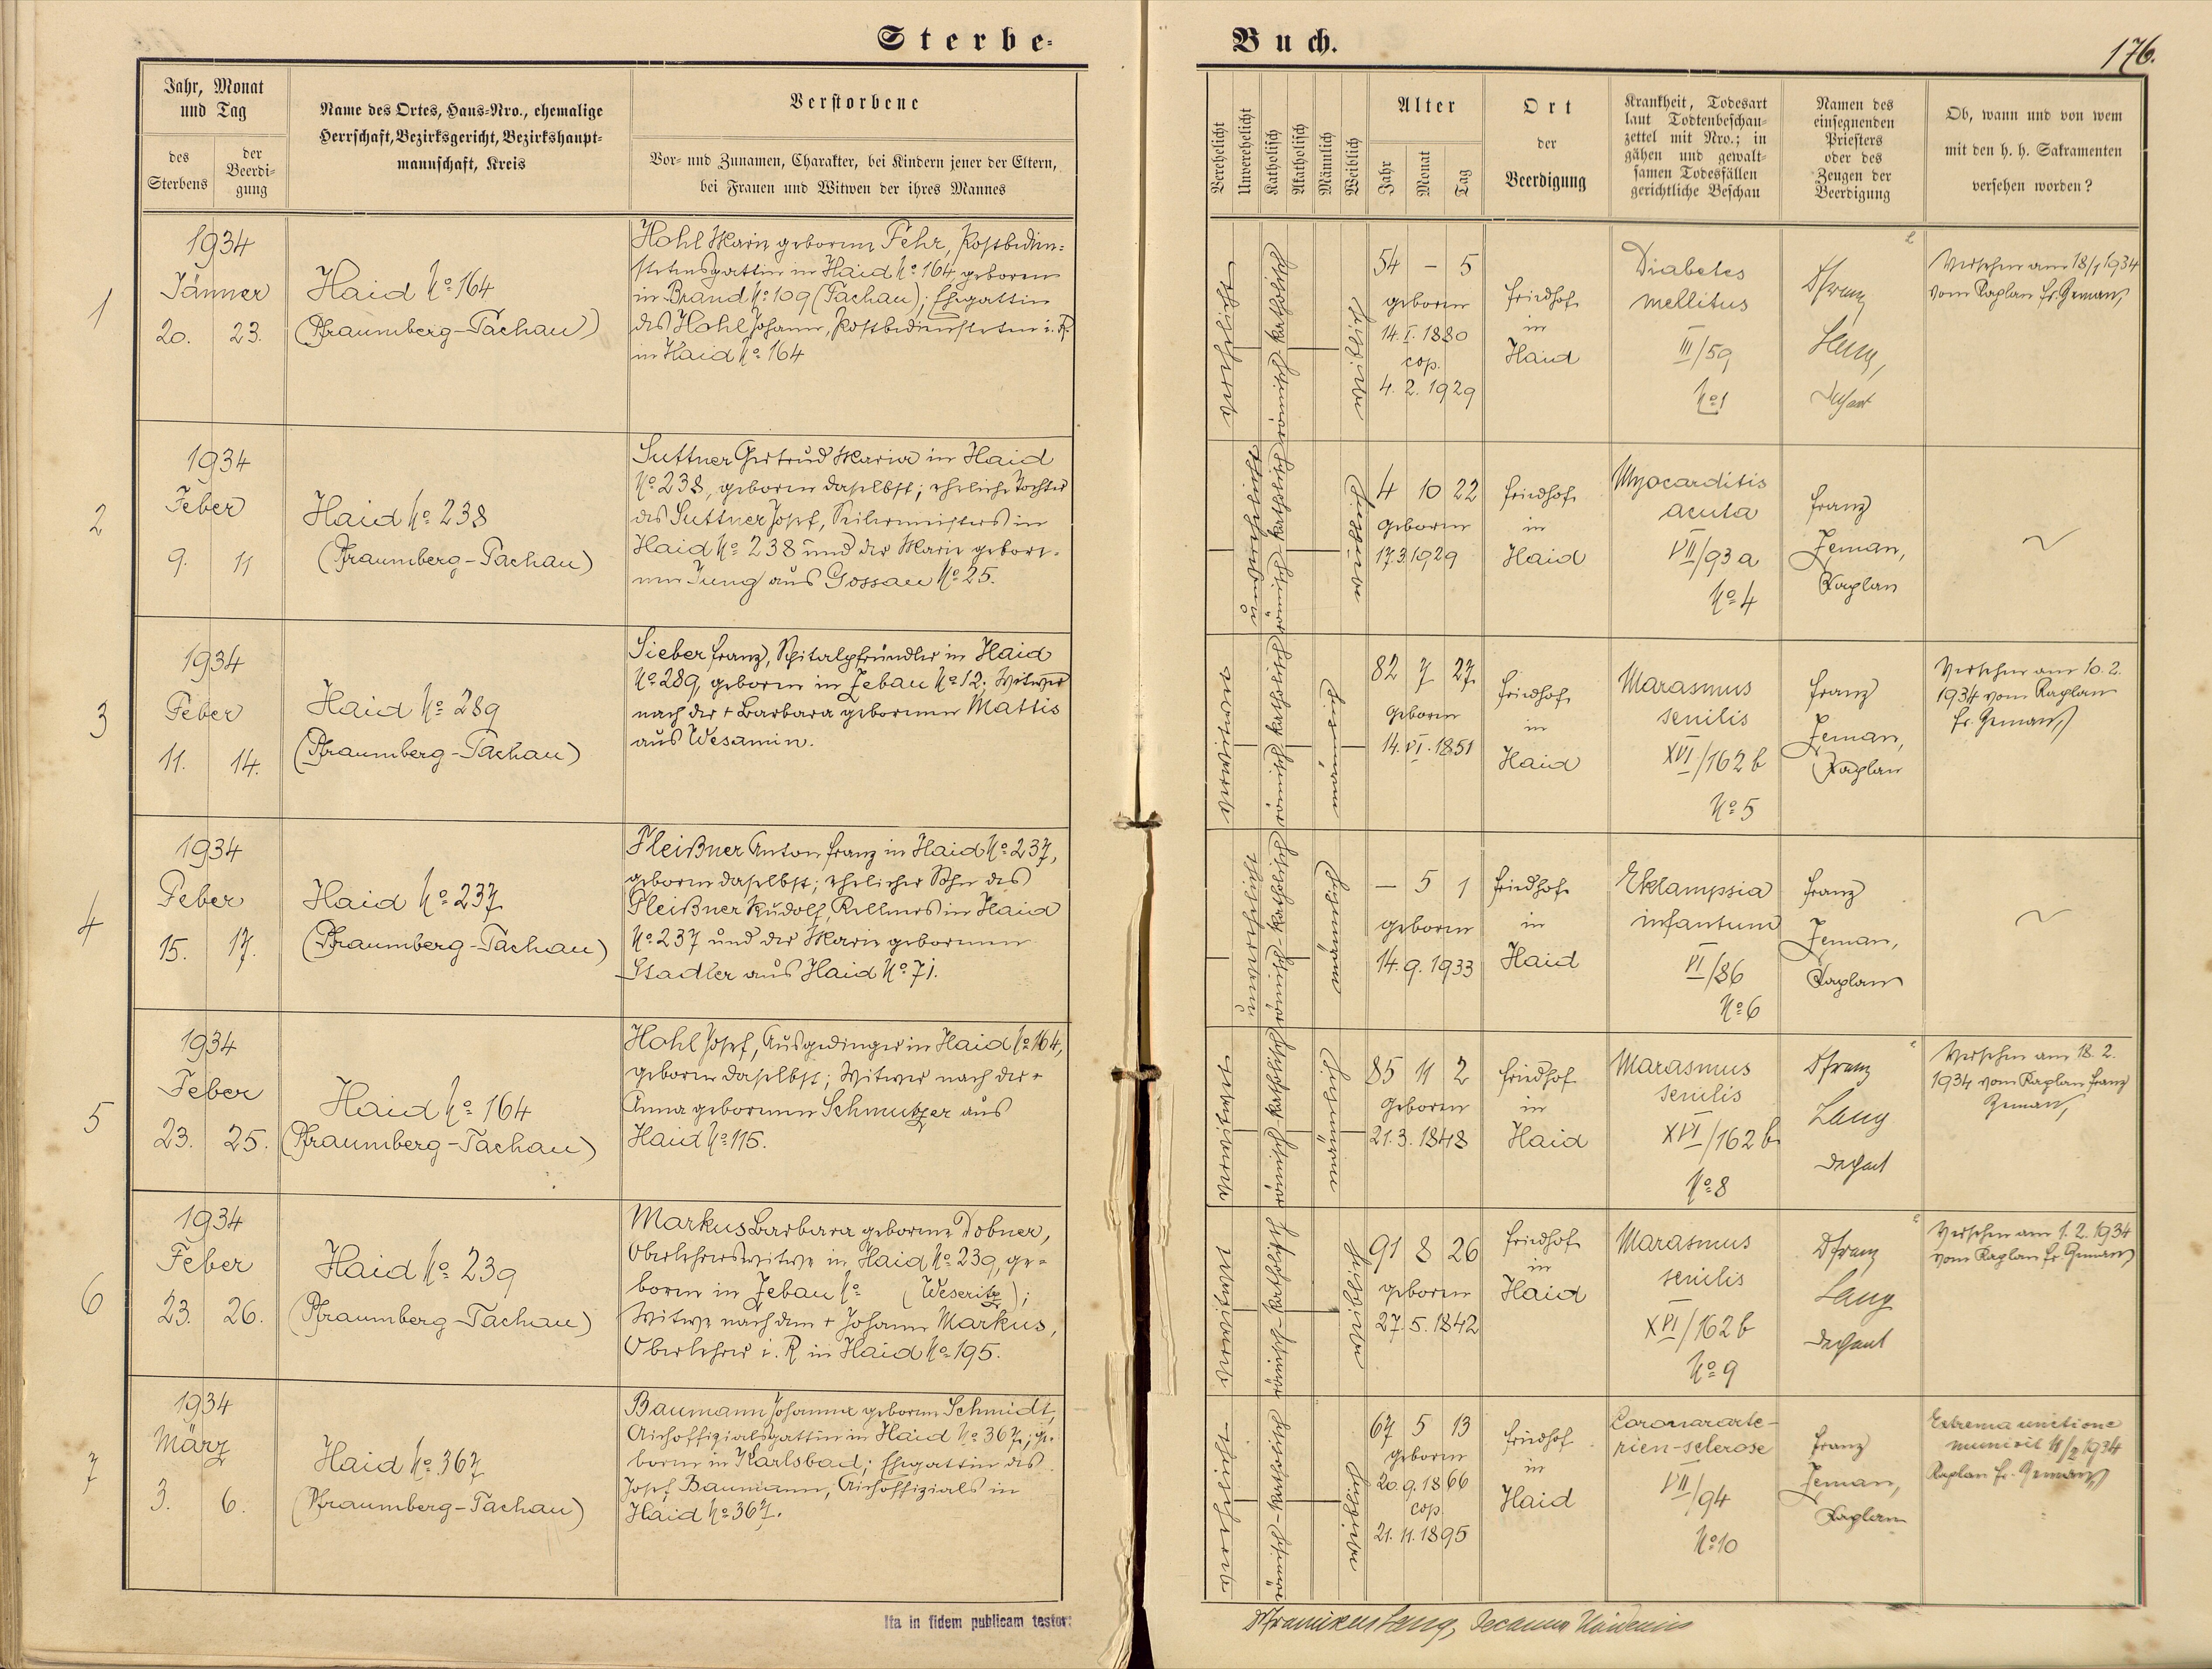 Sterbe-
Buch.
176.
Jahr, Monat
und Tag
des
Sterbens
der
Beerdi-
gung
Name des Ortes, Haus-Nro., ehemalige
Herrschaft, Bezirksgericht, Bezirkshaupt-
mannschaft, Kreis
Verstorbene
Vor- und Zunamen, Charakter, bei Kindern jener der Eltern,
bei Frauen und Witwen der ihres Mannes
Verehelicht
Unverehelicht
Katholisch
Akatholisch
Männlich
Weiblich
Alter
Jahr
Monat
Tag
Ort
der
Beerdigung
Krankheit, Todesart
laut Todtenbeschau-
zettel mit Nro.; in
gähen und gewalt-
samen Todesfällen
gerichtliche Beschau
Namen des
einsegnenden
Priesters
oder des
Zeugen der
Beerdigung
Ob, wann und von wem
mit den h. h. Sakramenten
versehen worden?
1
1934
Jänner
20. 23.
Haid No 164
(Pfraumberg-Tachau)
Hohl Marie geborene Fehr, Postbedien-
stetensgattin in Haid No 164, geboren
in Brand No 109 (Tachau); Ehegattin
des Hohl Johann, Postbediensteten i. R.
in Haid No 164
verehelicht
römisch katholisch
weiblich
54 – 5
geboren
14. I. 1880
cop.
4. 2. 1929
Friedhof
in
Haid
Diabetes
mellitus
III/59
No 1
Dr Franz
Lang,
Dechant
Versehen am 18/1 1934
vom Kaplan Fr. Zeman,
2
1934
Feber
9. 11
Haid No 238
(Pfraumberg-Tachau)
Suttner Gertrud Maria in Haid
No 238, geboren daselbst; eheliche Tochter
des Suttner Josef, Seilermeisters in
Haid No 238 und der Marie gebore-
nen Jung aus Gossau No 25.
unverehelicht
römisch-katholisch
weiblich
4 10 22
geboren
17.3.1929
Friedhof
in
Haid
Myocarditis
acuta
VII/93 a
No 4
Franz
Zeman,
Kaplan
~
3
1934
Feber
11. 14.
Haid No 289
(Pfraumberg-Tachau)
Sieber Franz, Spitalpfründler in Haid
No 289, geboren in Zebau No 12; Witwer
nach der + Barbara geborenen Mattis
aus Wesamin.
verwitwet
römisch katholisch
männlich
82 7 27
geboren
14. VI. 1851
Friedhof
in
Haid
Marasmus
senilis
XVI/162 b
No 5
Franz
Zeman,
Kaplan
Versehen am 10. 2.
1934 vom Kaplan
Fr. Zeman,
4
1934
Feber
15. 17.
Haid No 237
(Pfraumberg-Tachau)
Pleißner Anton Franz in Haid No 237,
geboren daselbst; ehelicher Sohn des
Pleißner Rudolf, Kellners in Haid
No 237 und der Marie geborenen
Stadler aus Haid No 71.
unverehelicht
römisch-katholisch
männlich
– 5 1
geboren
14. 9. 1933
Friedhof
in
Haid
Eklampsia
infantum
VI/86
No 6
Franz
Zeman,
Kaplan
~
5
1934
Feber
23. 25.
Haid No 164
(Pfraumberg-Tachau)
Hohl Josef, Ausgedinger in Haid No 164,
geboren daselbst; Witwer nach der +
Anna geborenen Schmutzer aus
Haid No 115.
verwitwet
römisch-katholisch
männlich
85 11 2
geboren
21. 3. 1848
Friedhof
in
Haid
Marasmus
senilis
XVI/162 b
No 8
Dr Franz
Lang
Dechant
Versehen am 18. 2.
1934 vom Kaplan Franz
Zeman,
6
1934
Feber
23. 26.
Haid No 239
(Pfraumberg-Tachau)
Markus Barbara geborene Dobner,
Oberlehrerswitwe in Haid No 239, ge-
boren in Zebau No (Weseritz);
Witwe nach dem + Johann Markus,
Oberlehrer i. R in Haid No 195.
verwitwet
römisch-katholisch
weiblich
91 8 26
geboren
27. 5. 1842
Friedhof
in
Haid
Marasmus
senilis
XVI/162 b
No 9
Dr Franz
Lang
Dechant
Versehen am 1. 2. 1934
vom Kaplan Fr Zeman,
7
1934
März
3. 6.
Haid No 367
(Pfraumberg-Tachau)
Baumann Johanna geborene Schmidt,
Aichoffizialsgattin in Haid No 367; ge-
boren in Karlsbad; Ehegattin des
Josef Baumann, Aichoffizials in
Haid No 367.
verehelicht
römisch-katholisch
weiblich
67 5 13
geboren
20. 9. 1866
cop.
21. 11. 1895
Friedhof
in
Haid
Coronararte-
rien-sclerose
VII/94
No 10
Franz
Zeman,
Kaplan
Extrema unctione
munivit 11/2 1934
Kaplan Fr. Zeman,
Ita in fidem publicam testor:
Dr Franciscus Lang, Decanus Haidensis